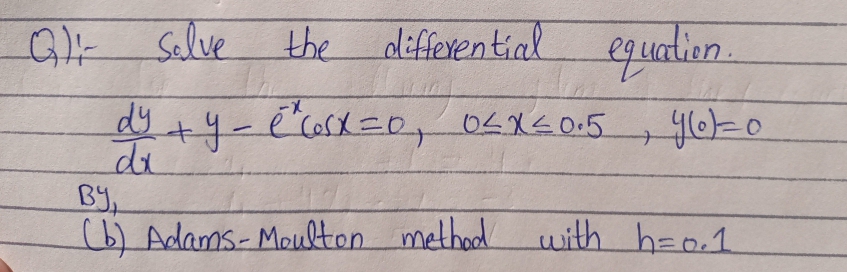 Q):- Solve the differential equation.
dy/dx + y - e^-x Cosx = 0, 0≤x≤0.5, y(0)=0
By,
(b) Adams-Moulton method with h=0.1